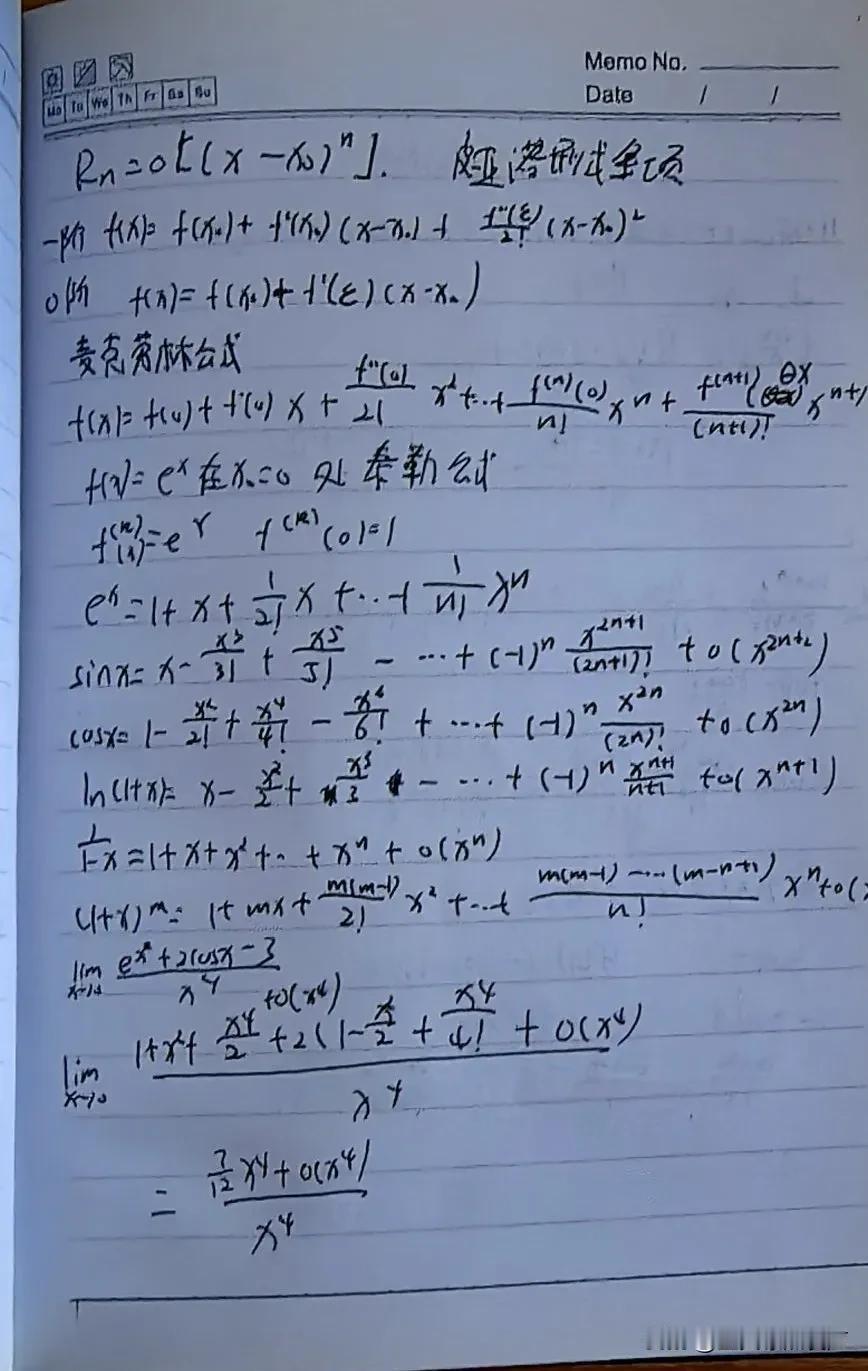 Memo No.
Date / /
Mo Tu We Th Fr Sa Su
Rn=o[(x-x₀)ⁿ]. 皮亚诺形式余项
一阶 f(x)= f(x₀)+ f'(x₀)(x-x₀)+ f''(ξ)/2! (x-x₀)²
0阶 f(x)=f(x₀)+f'(ξ)(x-x₀)
麦克劳林公式
f(x)=f(0)+f'(0)x+ f''(0)/2! x²+…+ f⁽ⁿ⁾(0)/n! xⁿ + f⁽ⁿ⁺¹⁾(θx)/(n+1)! xⁿ⁺¹
f(x)=eˣ在x₀=0处泰勒公式
f⁽ⁿ⁾(x)=eˣ f⁽ⁿ⁾(0)=1
eˣ=1+x+ 1/2! x +…+ 1/n! xⁿ
sinx= x- x³/3! + x⁵/5! - …+(-1)ⁿ x²ⁿ⁺¹/(2n+1)! +o(x²ⁿ⁺²)
cosx= 1- x²/2! + x⁴/4! - x⁶/6! + …+(-1)ⁿ x²ⁿ/(2n)! +o(x²ⁿ)
ln(1+x)= x- x²/2 + x³/3 - …+(-1)ⁿ xⁿ⁺¹/n+1 +o(xⁿ⁺¹)
1/1-x =1+x+x²+..+xⁿ+o(xⁿ)
(1+x)ᵐ= 1+mx+ m(m-1)/2! x²+…+ m(m-1)……(m-n+1)/n! xⁿ+o(
lim x→0 eˣ²+2cosx-3 / x⁴
lim x→0 1+x²+ x⁴/2 +o(x⁴) +2(1- x²/2 + x⁴/4! +o(x⁴) / x⁴
= 7/12 x⁴+o(x⁴) / x⁴